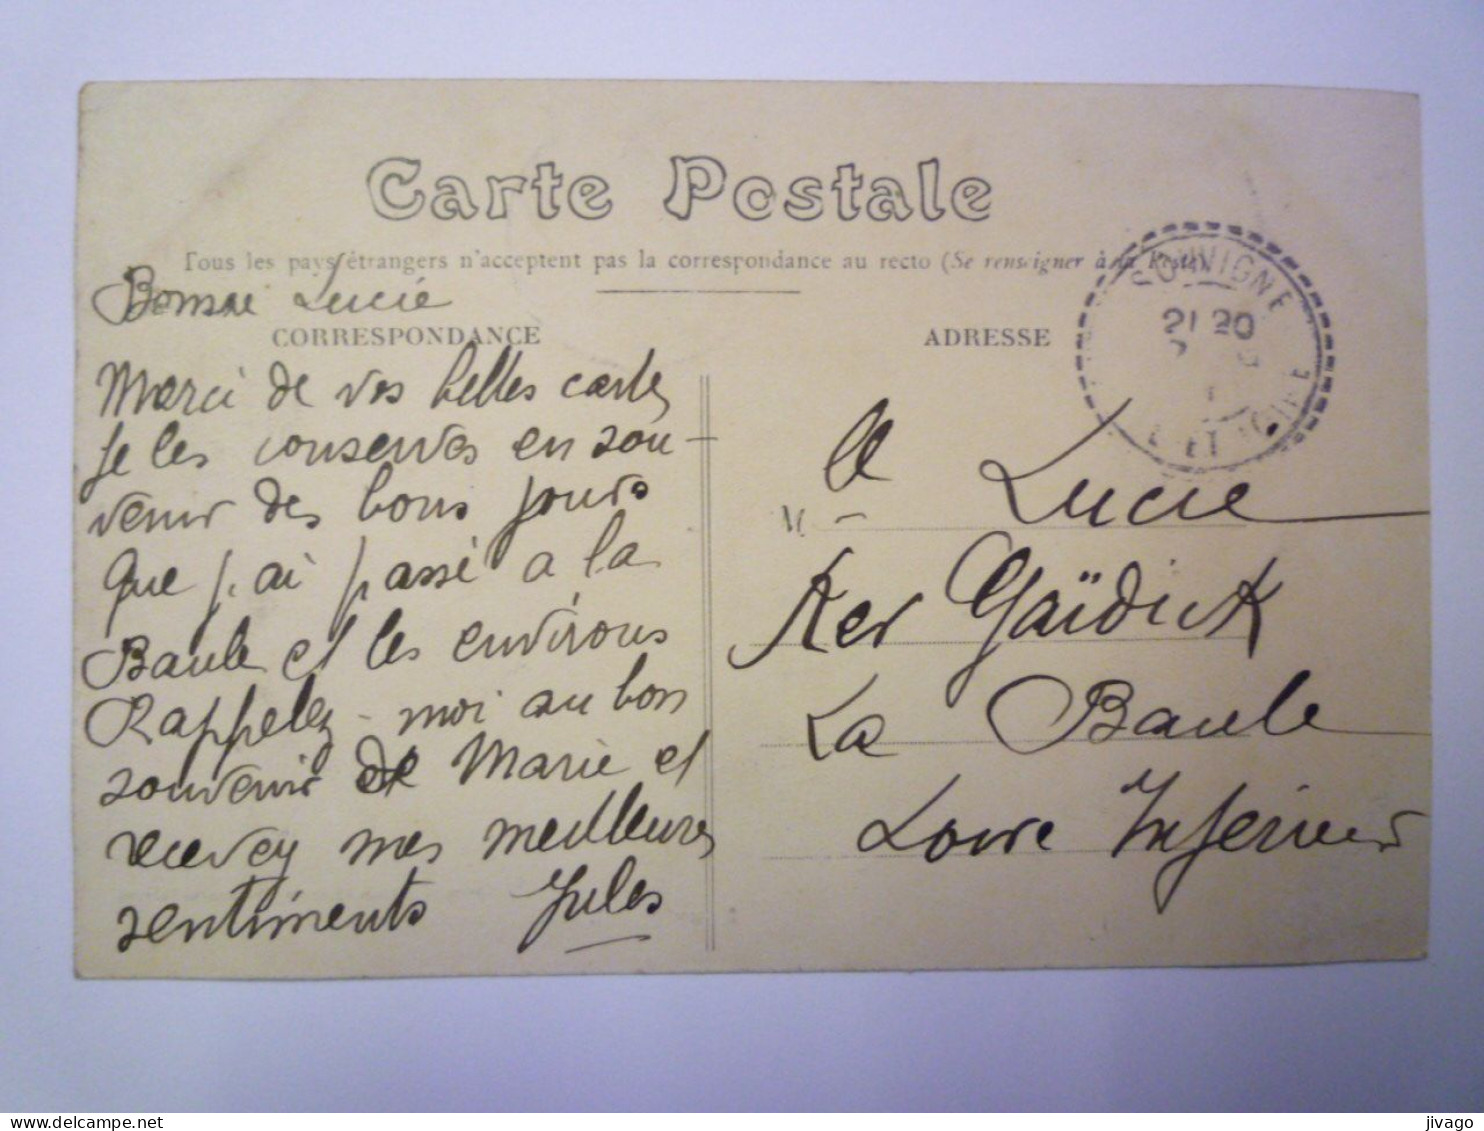 Carte Postale
Tous les pays étrangers n'acceptent pas la correspondance au recto (Se renseigner à la Poste)
Bonne Lucie
CORRESPONDANCE
Merci de vos belles cartes
Je les conserves en sou-
venir des bons jours
Que j'ai passé a la
Baule et les environs
Rappelez-moi au bon
souvenir de Marie et
recevez mes meilleures
sentiments Jules
ADRESSE
SOUVIGNÉ
21 20
ET LOIRE
Lucie
Ker Gaïdick
La Baule
Loire Inférieur
jivago